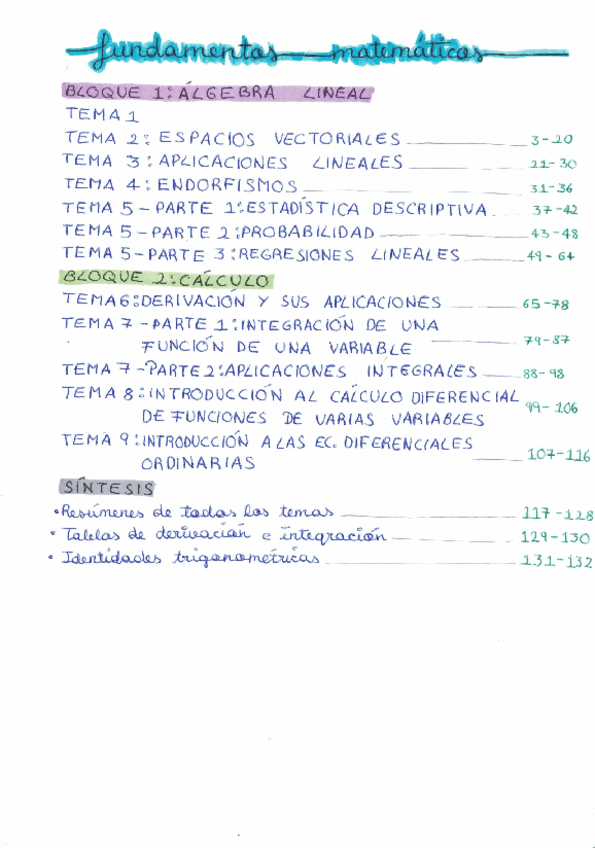 fundamentos matemáticos
BLOQUE 1: ÁLGEBRA LINEAL
TEMA 1
TEMA 2: ESPACIOS VECTORIALES 3-20
TEMA 3: APLICACIONES LINEALES 21-30
TEMA 4: ENDORFISMOS 31-36
TEMA 5-PARTE 1: ESTADÍSTICA DESCRIPTIVA 37-42
TEMA 5-PARTE 2: PROBABILIDAD 43-48
TEMA 5-PARTE 3: REGRESIONES LINEALES 49-64
BLOQUE 2: CÁLCULO
TEMA 6: DERIVACIÓN Y SUS APLICACIONES 65-78
TEMA 7-PARTE 1: INTEGRACIÓN DE UNA
FUNCIÓN DE UNA VARIABLE 79-87
TEMA 7-PARTE 2: APLICACIONES INTEGRALES 88-98
TEMA 8: INTRODUCCIÓN AL CÁLCULO DIFERENCIAL
DE FUNCIONES DE VARIAS VARIABLES 99-106
TEMA 9: INTRODUCCIÓN A LAS EC. DIFERENCIALES
ORDINARIAS 107-116
SÍNTESIS
• Resúmenes de todos los temas 117-128
• Tablas de derivación e integración 129-130
• Identidades trigonométricas 131-132